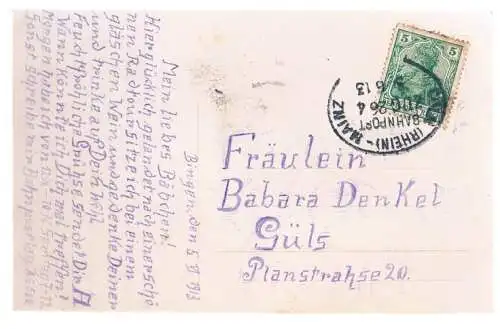 Bingen, den 5 VI 1913
Mein liebes Bäbchen!
Hier glücklich gelandet nach einer schö
nen Radtour sitze ich bei einem
gläschen Wein und gedenke Deiner
und trinke auf Dein Wohl
Feuchtfröhliche Grüße sendet Dir A
Wann könnte ich Dich mal treffen?
Morgen habe ich von
Sonst schreibe mir
5
5
(RHEIN) - MAINZ
BAHNPOST
ZUG 264
6 13
Fräulein
Babara Denkel
Güls
Planstrahse 20.